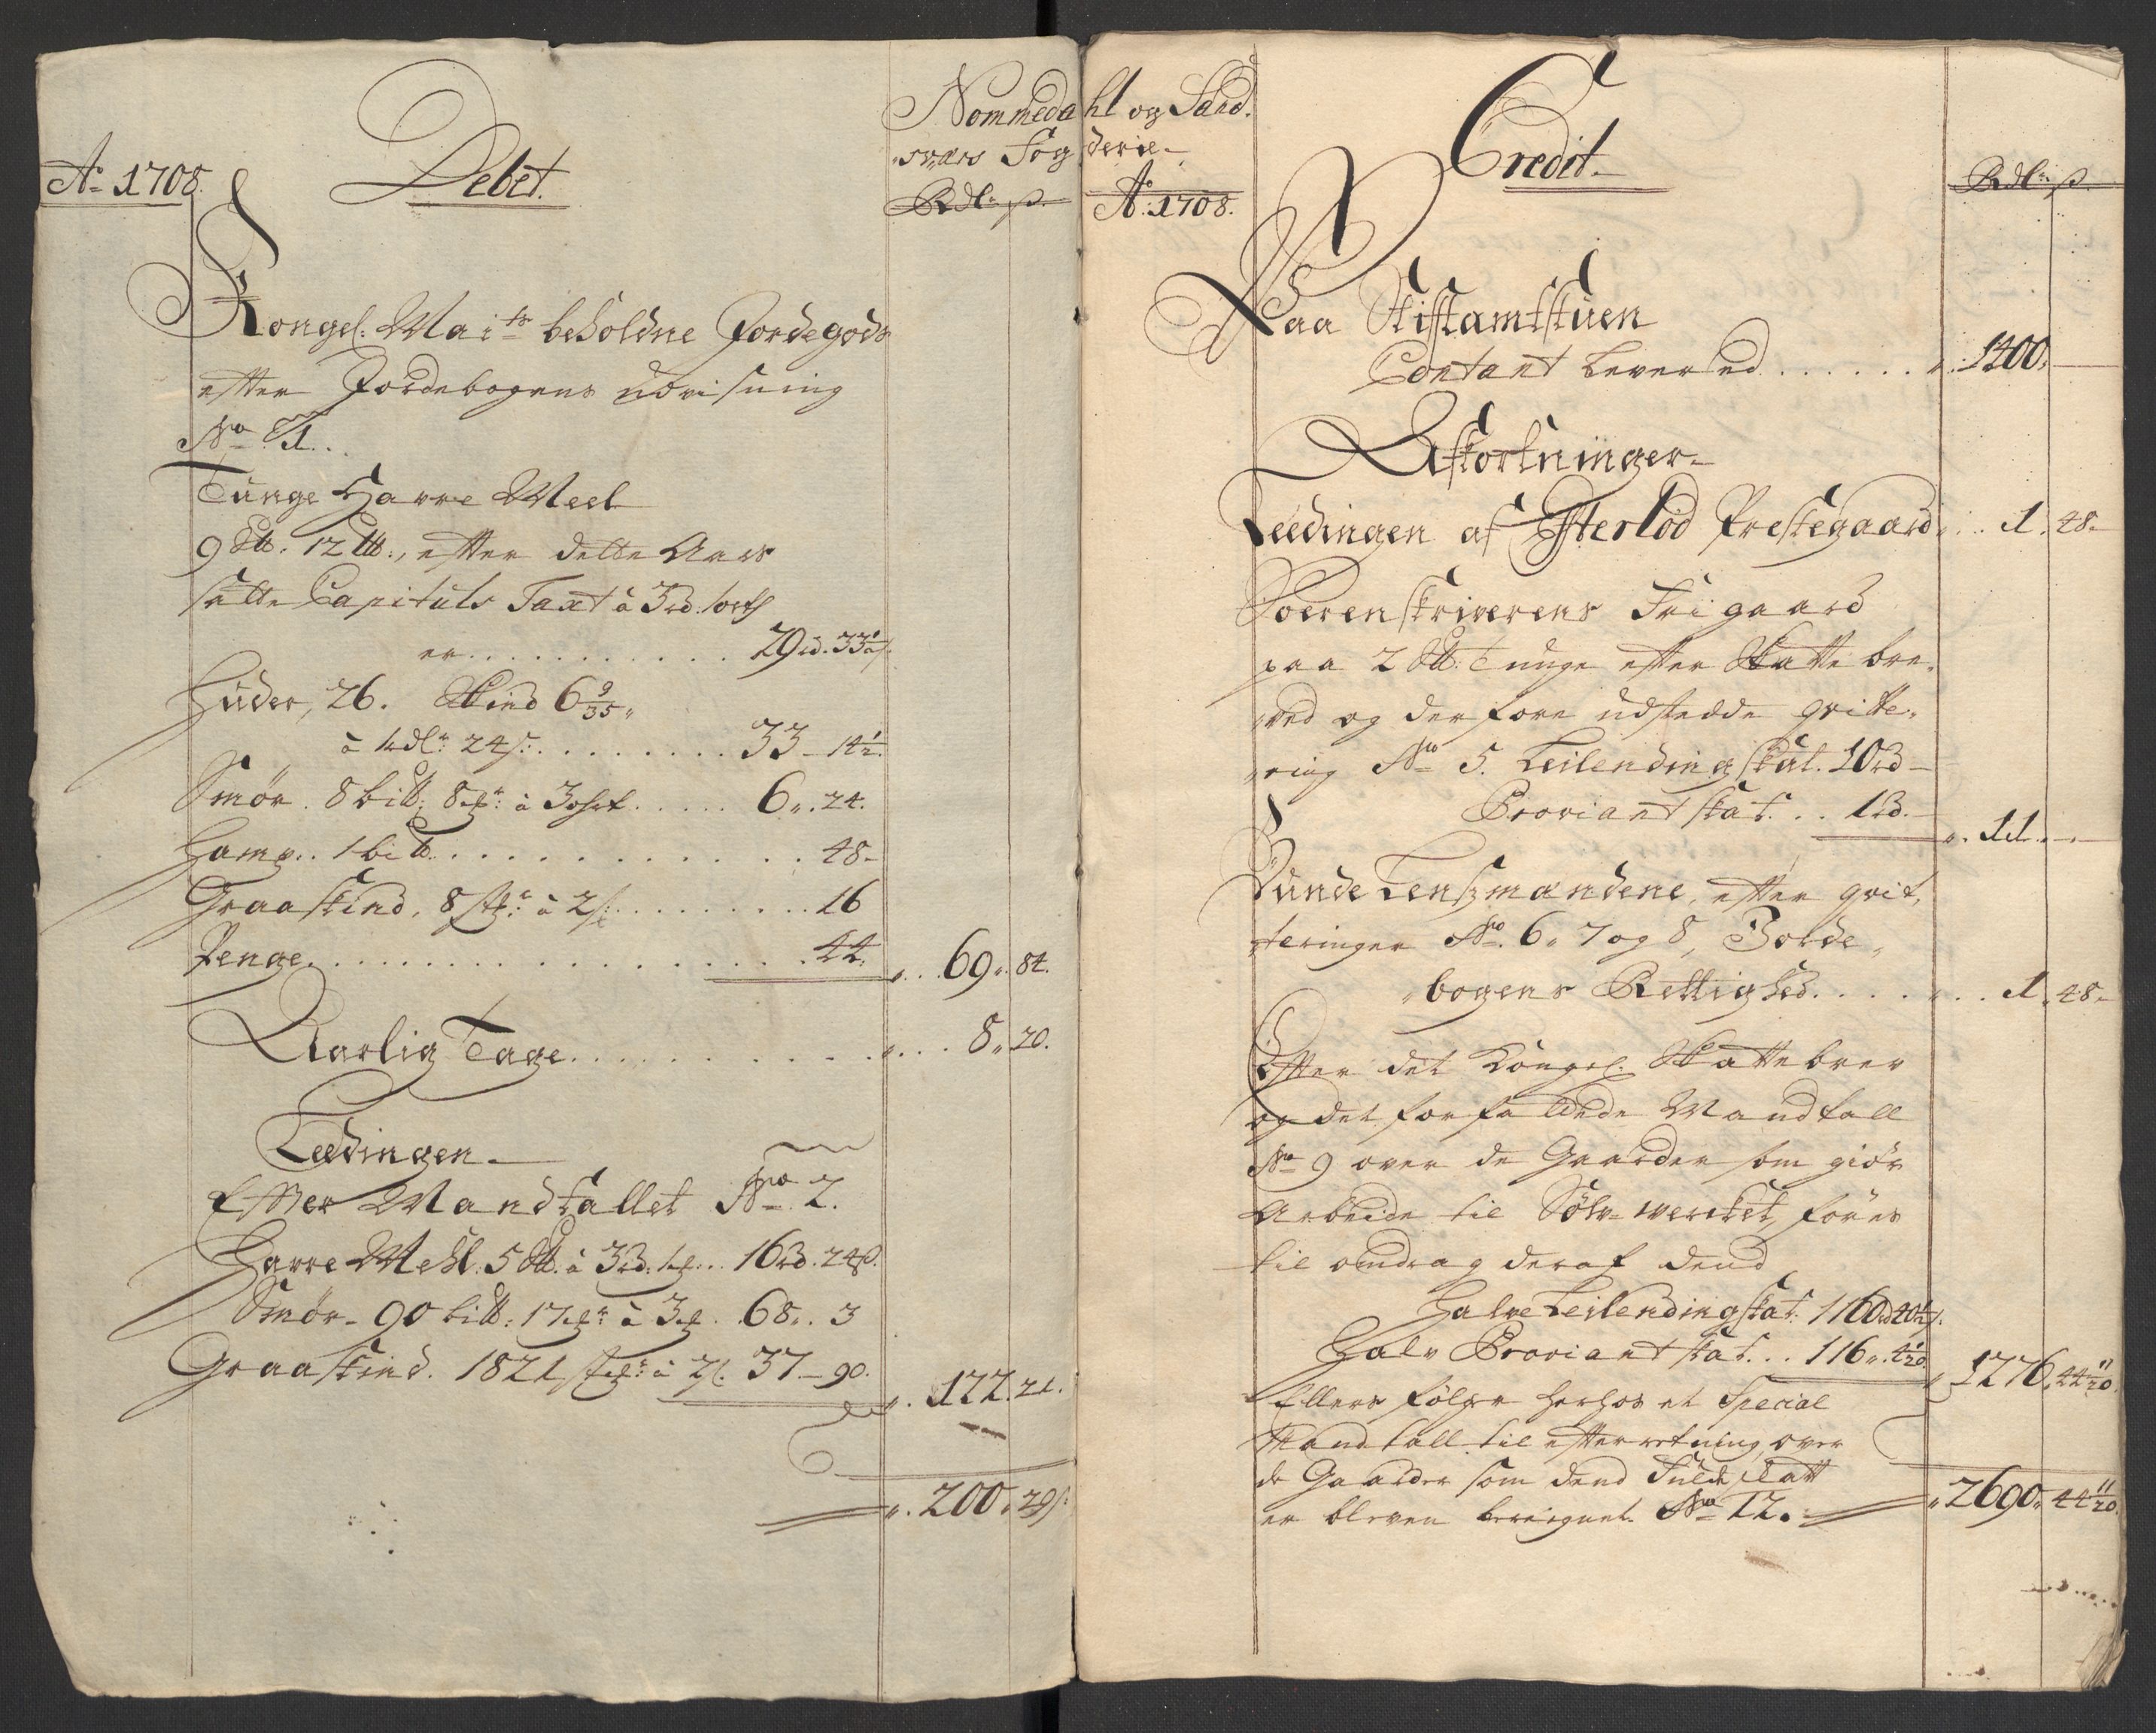 Nommedahl og Sand-
sværs Fogderie
Ao 1708.
Debet.
Rdlr. ß.
Kongel: Maits beholdne Jordegods
efter Jordebogens udvisning
No 1.
Tunge Havre Meel
9 Sk. 12 lb., efter dette Aars
satte Capituls Taxt à 3 rd. 1 ort
er . . . . . 29 rd. 33½ ß.
Huder, 26. Skind 6 9/35
à 1 rdlr 24 ß . . . . 33 - 14½.
Smör. 8 bitt. 8 à 3 . . . . 6 „ 24.
Hamp. 1 bitt . . . . . 48 -
Graaskind, 8 st: à 2 ß . . . . 16
Penge . . . . . 44. „ 69 „ 84.
Aarlig Tage . . . . . 8 „ 20.
Leedingen
Efter Mandtallet No 2.
Havre Mehl. 5 Sk. à 3 rd. . . 16 rd. 24 ß.
Smör - 90 bitt: 17 à 3 . 68 „ 3
Graaskind. 1821 à 2 ß. 37 - 90. „ 122. 21.
„ 200 „ 29 ß.
Credit.
Ao 1708.
Rdlr. ß.
Paa Stiftamtstuen
Contant Leverled . . . . . „ 1400. -
Afkortninger
Leedingen af Ysterlöd Prestegaard „ . . 1. 48 -
Soerenskriverens Frigaard
paa 2 Sk: Tunge efter Skattebre-
ved og derfore udstedde qvitte-
ring No 5. Leilendingskat. 10 rd -
Proviantskat . . 1 rd. - „ 11 . -
Bunde Lensmændene, efter qvit-
teringer No. 6 „ 7 og 8, Jorde-
bogens Rettighed . . . . „ . . 1. 48 -
Efter det Kongel: Skattebrev
og det forfattede Mandtall
No 9 over de Gaarder som giör
Arbeide til Sölv-wercket, föres
til omdrag deraf dend
Halve Leilendingskat: 1160 rd 40½ ß.
Halv Proviantskat . . . 116 „ 4 1/20. „ 1276. 44 11/20.
Ellers fölger herhos et Special
Mandtall til efterretning, over
de Gaarder som dend Fulde Skatt
er bleven bereignet No 12. „ 2690 „ 44 11/20.